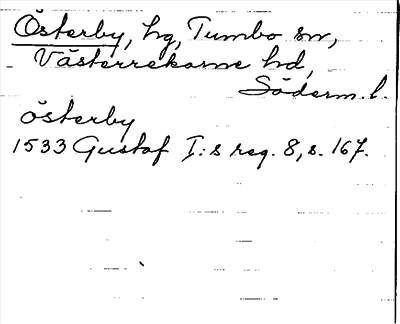 Österby, hg, Tumbo sn,
Västerrekarne hd,
Söderm. l.
österby
1533 Gustaf I:s reg. 8, s. 167.